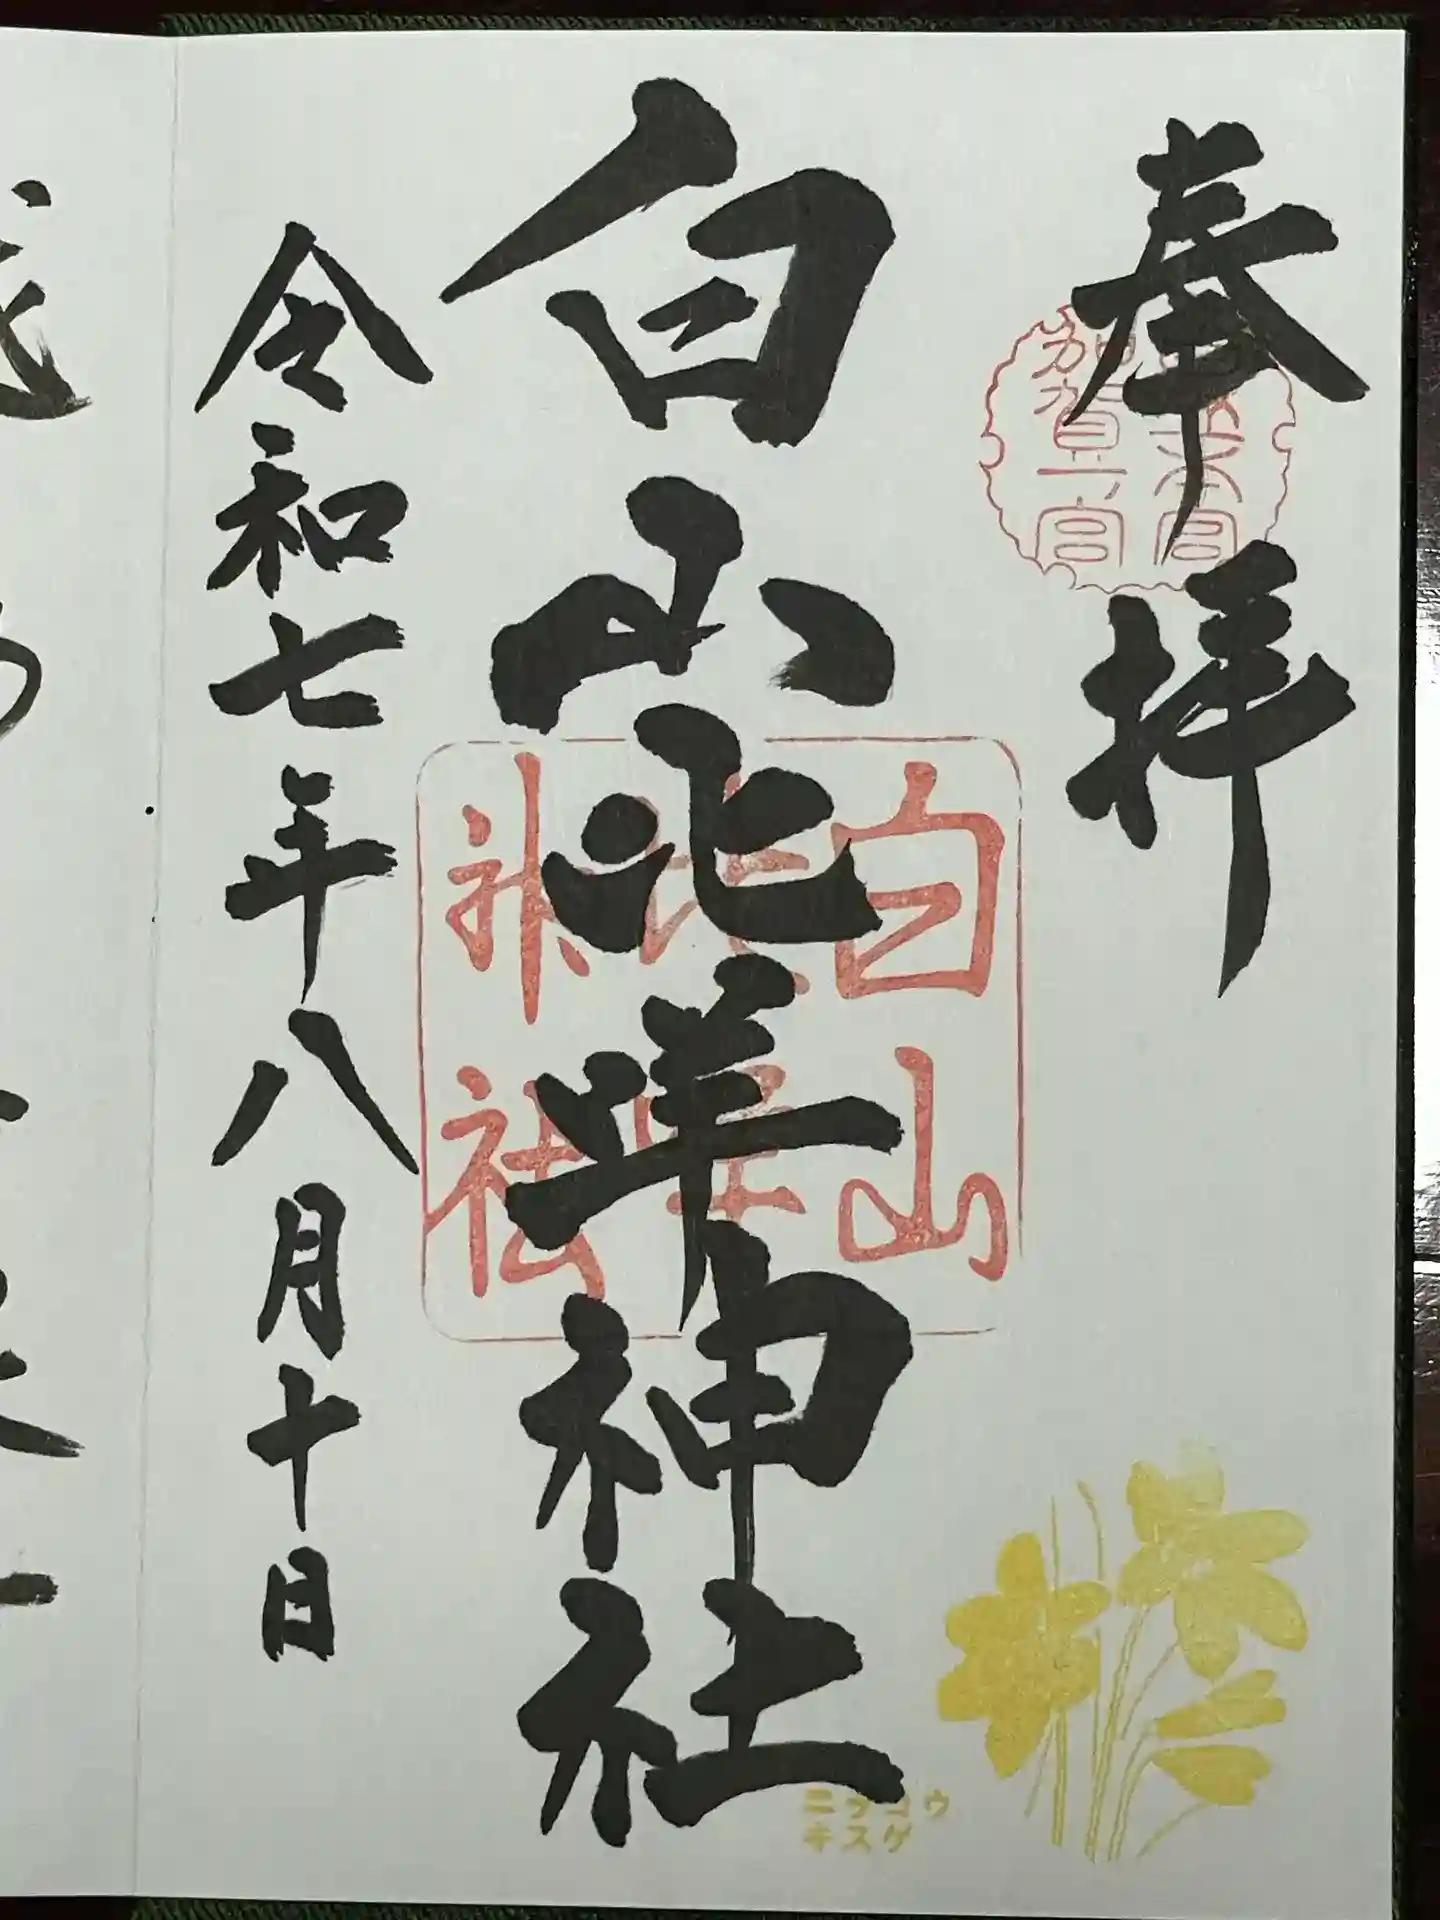 奉拝
加賀一宮
白山比咩神社
白山
比咩
神社
令和七年八月十日
ニッコウ
キスゲ